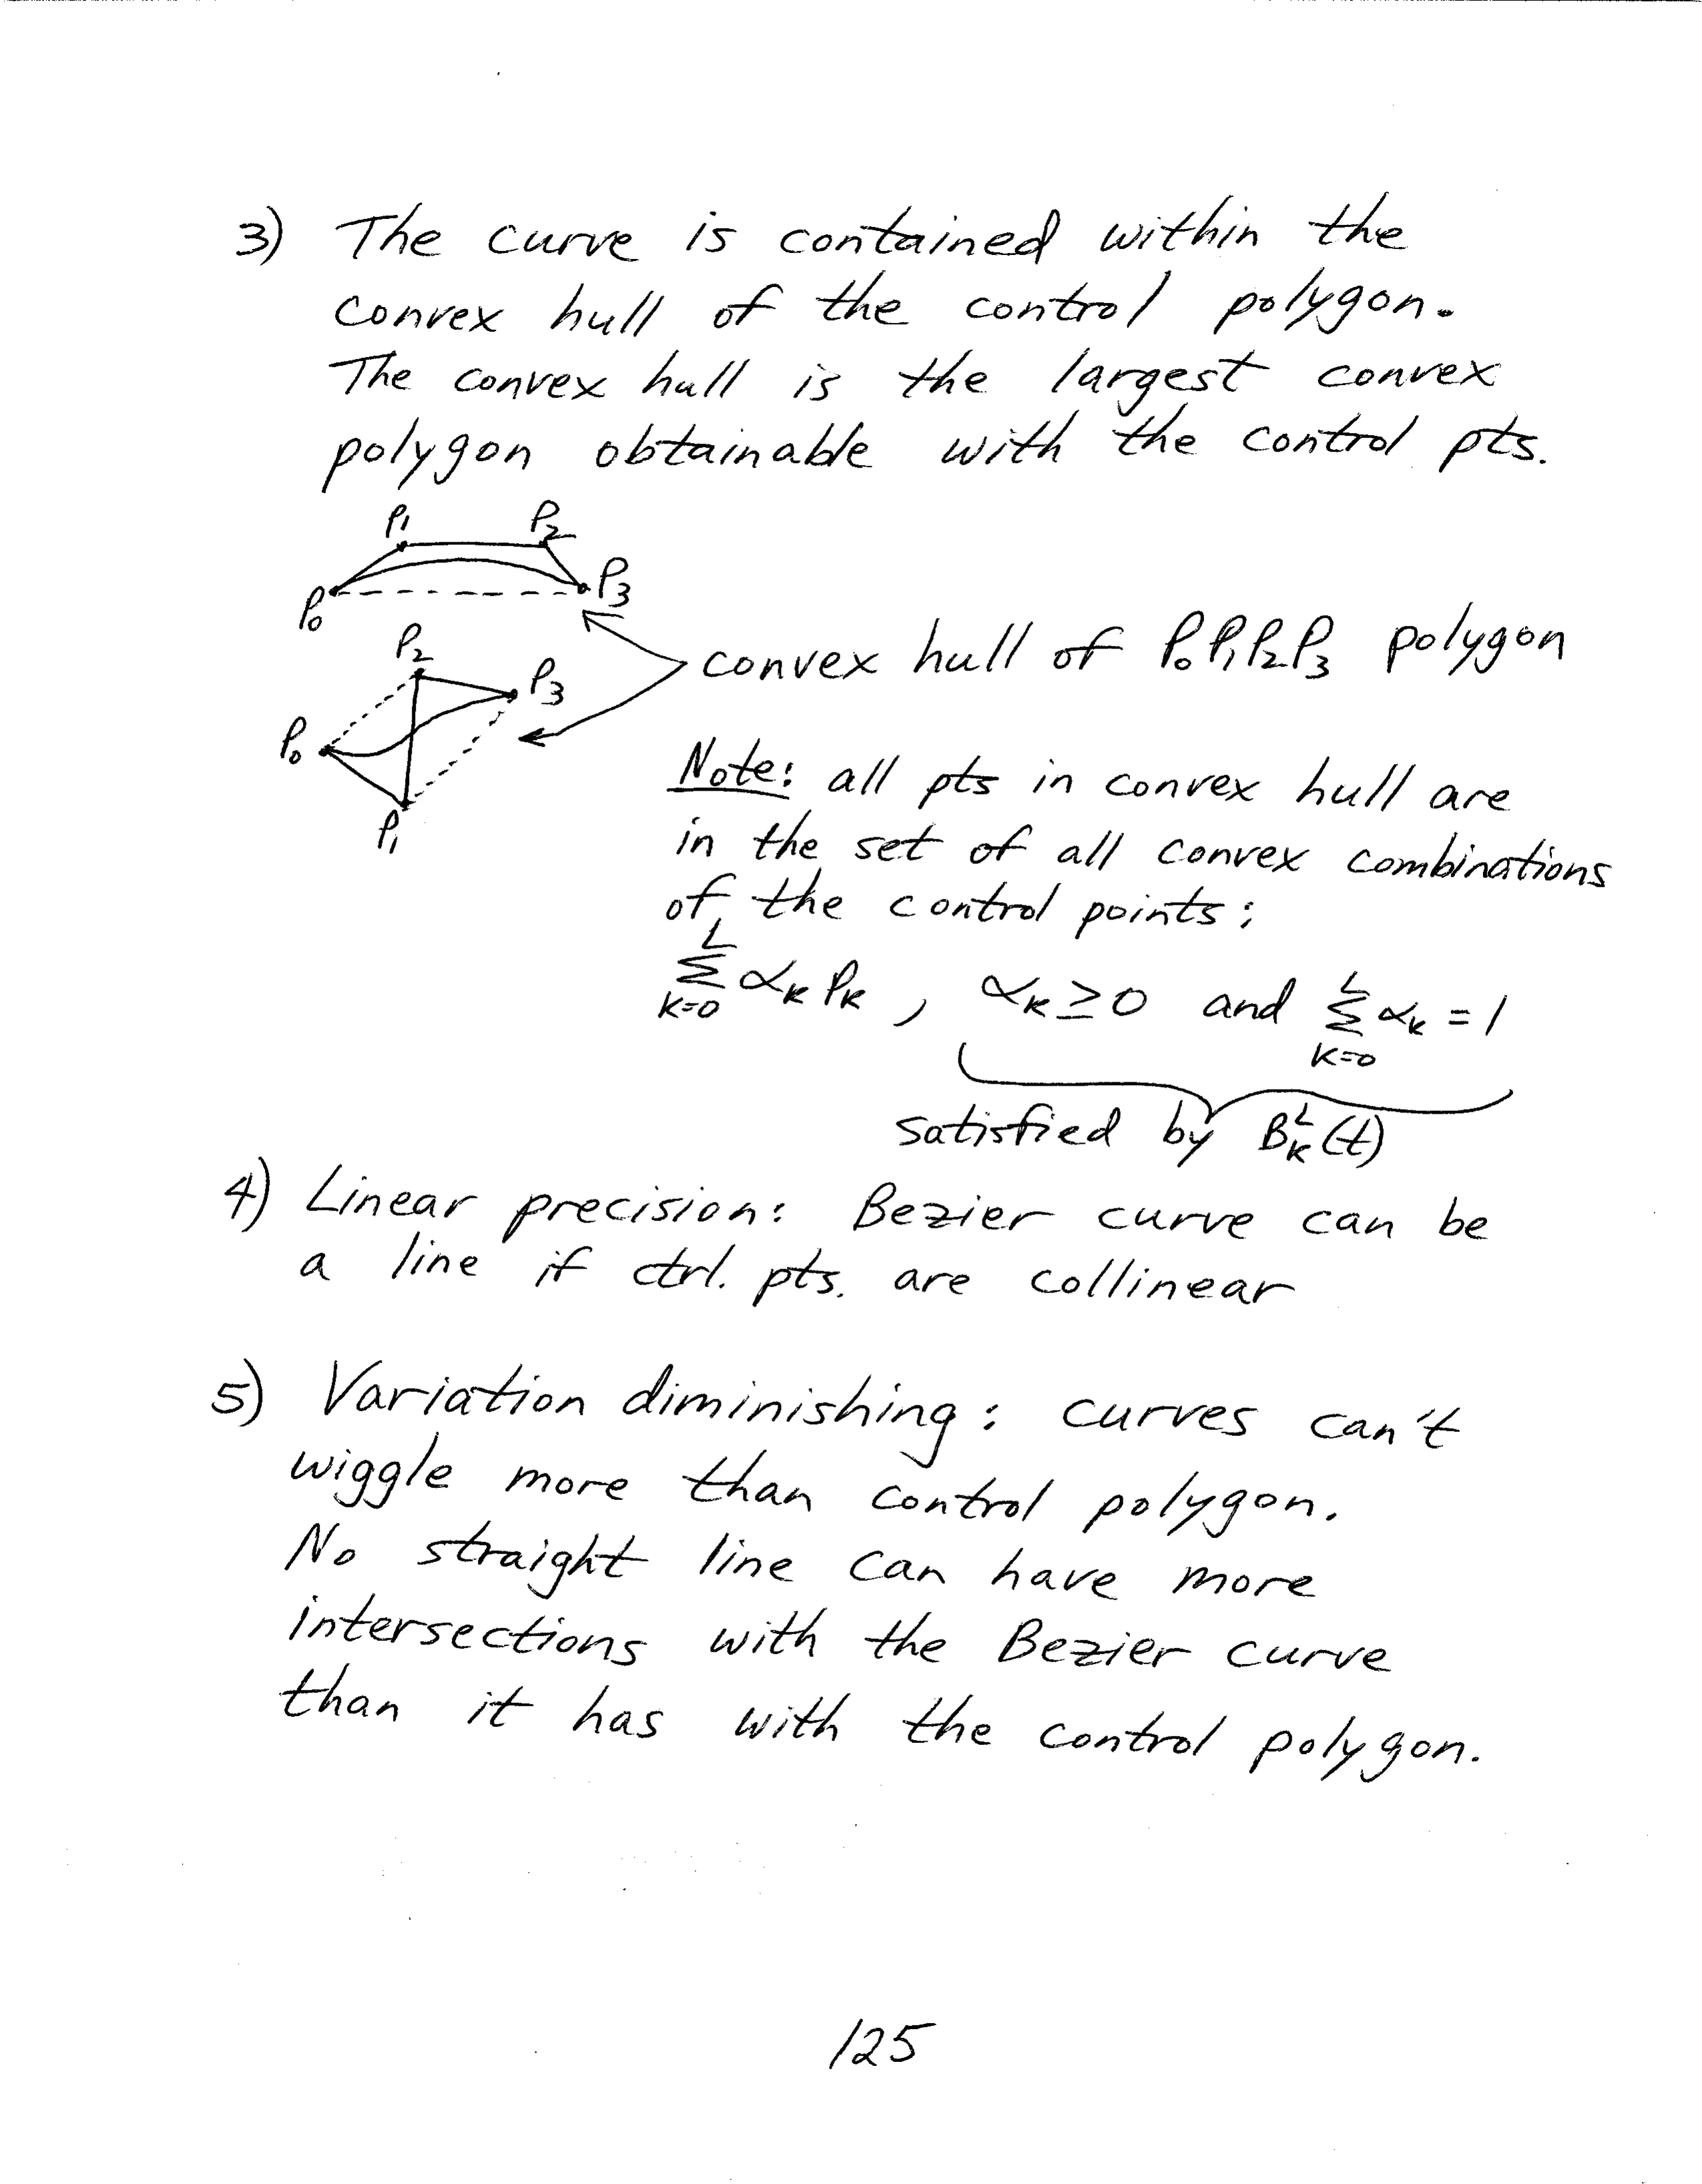 3) The curve is contained within the
convex hull of the control polygon.
The convex hull is the largest convex
polygon obtainable with the control pts.
P₁ P₂
P₀ P₃
P₂
P₃
convex hull of P₀P₁P₂P₃ polygon
P₀
P₁
Note: all pts in convex hull are
in the set of all convex combinations
of the control points:
∑_{k=0}^{L} αₖ Pₖ , αₖ ≥ 0 and ∑_{k=0}^{L} αₖ = 1
satisfied by Bₖᴸ(t)
4) Linear precision: Bezier curve can be
a line if ctrl. pts. are collinear
5) Variation diminishing: curves can't
wiggle more than control polygon.
No straight line can have more
intersections with the Bezier curve
than it has with the control polygon.
125